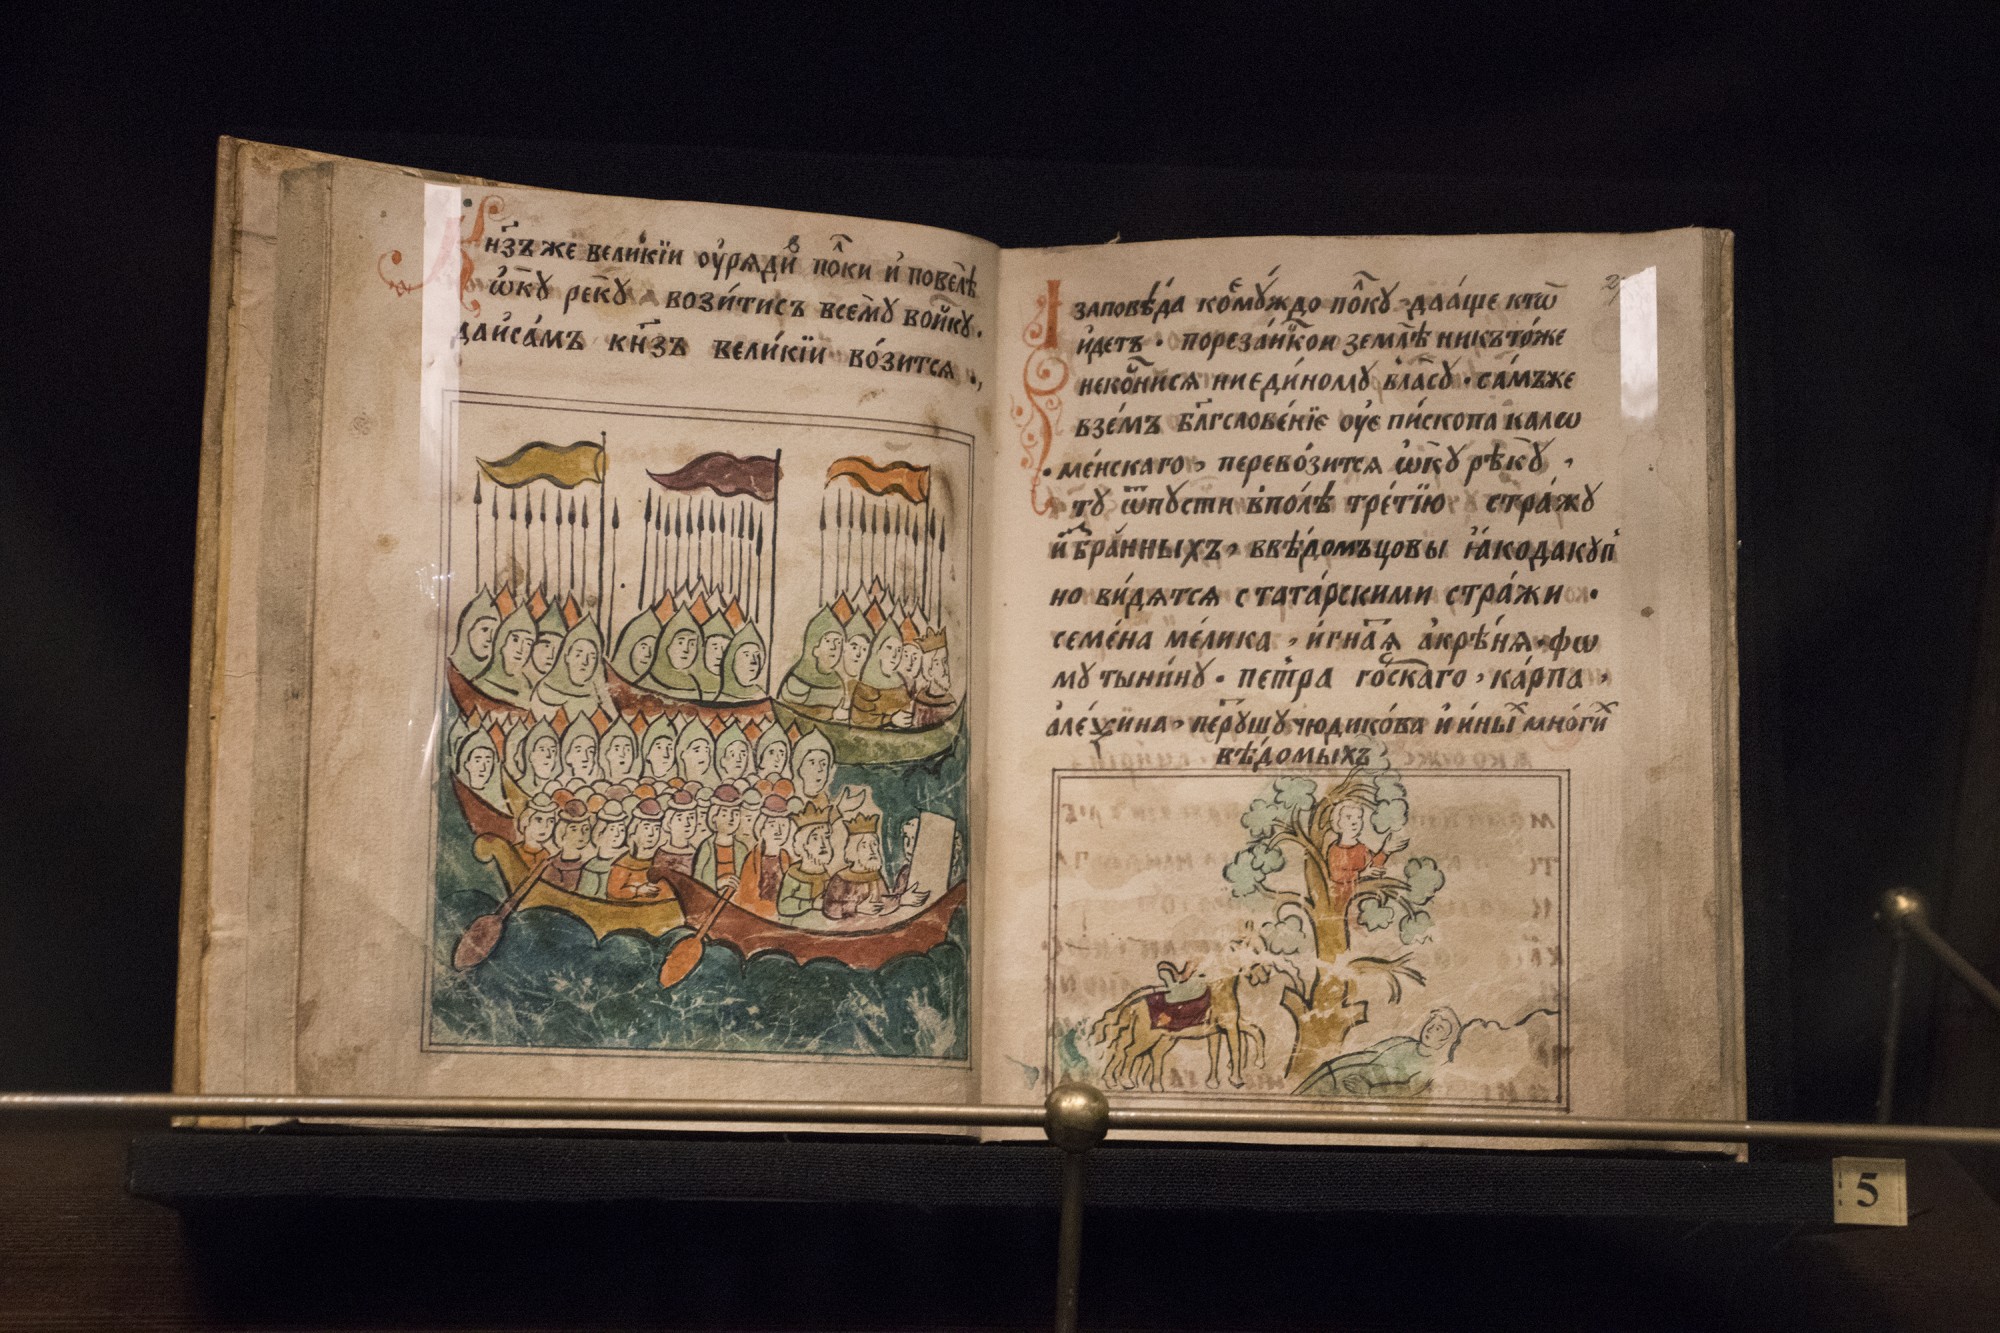 Кн҃зъ же великїи ѹ҆ряди пⷧ҇оки и҆ повелѣ
ѡ҆кꙋ рекꙋ вози́тисъ всемꙋ во́йскꙋ.
да и҆ са́мъ кн҃зъ вели́кїи во́зится .,
И заповѣ́да комꙋ́ждо полкꙋ да а́ще кто̀
и҆детъ . по реза́нкои землѣ никъто́же
не косни́ся ни еди́номꙋ вла́сꙋ . са́мъ же
взе́мъ бл҃гслове́нїе ѹ҆ е пи́скопа кало
ме́нскаго , перево́зится ѡ҆кꙋ рѣкꙋ ,
тꙋ ѿпꙋсти в по́лѣ тре́тїю стра́жꙋ
и҆бра́нныхъ , вѣ́домъцовы ꙗ҆ко да кꙋп
но ви́дятся с тата́рскими стра́жи .
семе́на ме́лика , и҆гна́я а҆крѣ́ня . фо
мꙋ тыни́нꙋ . петра го́скаго , ка́рпа ,
але́ѯина , перꙋшꙋ чюдико́ва и҆ и́ны мно́ги
вѣ́домыхъ
5